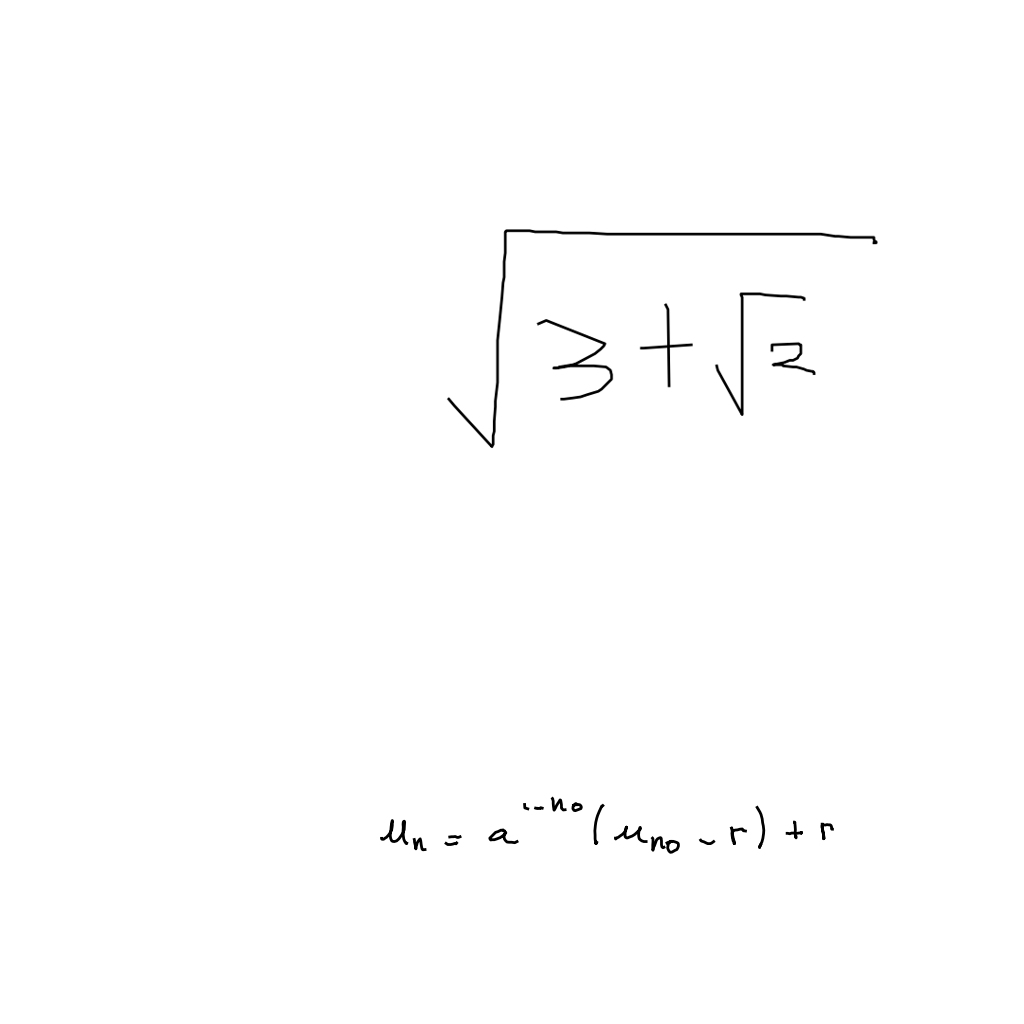 √(3+√2)
u_n = a^{n-n_0}(u_{n_0} - r) + r